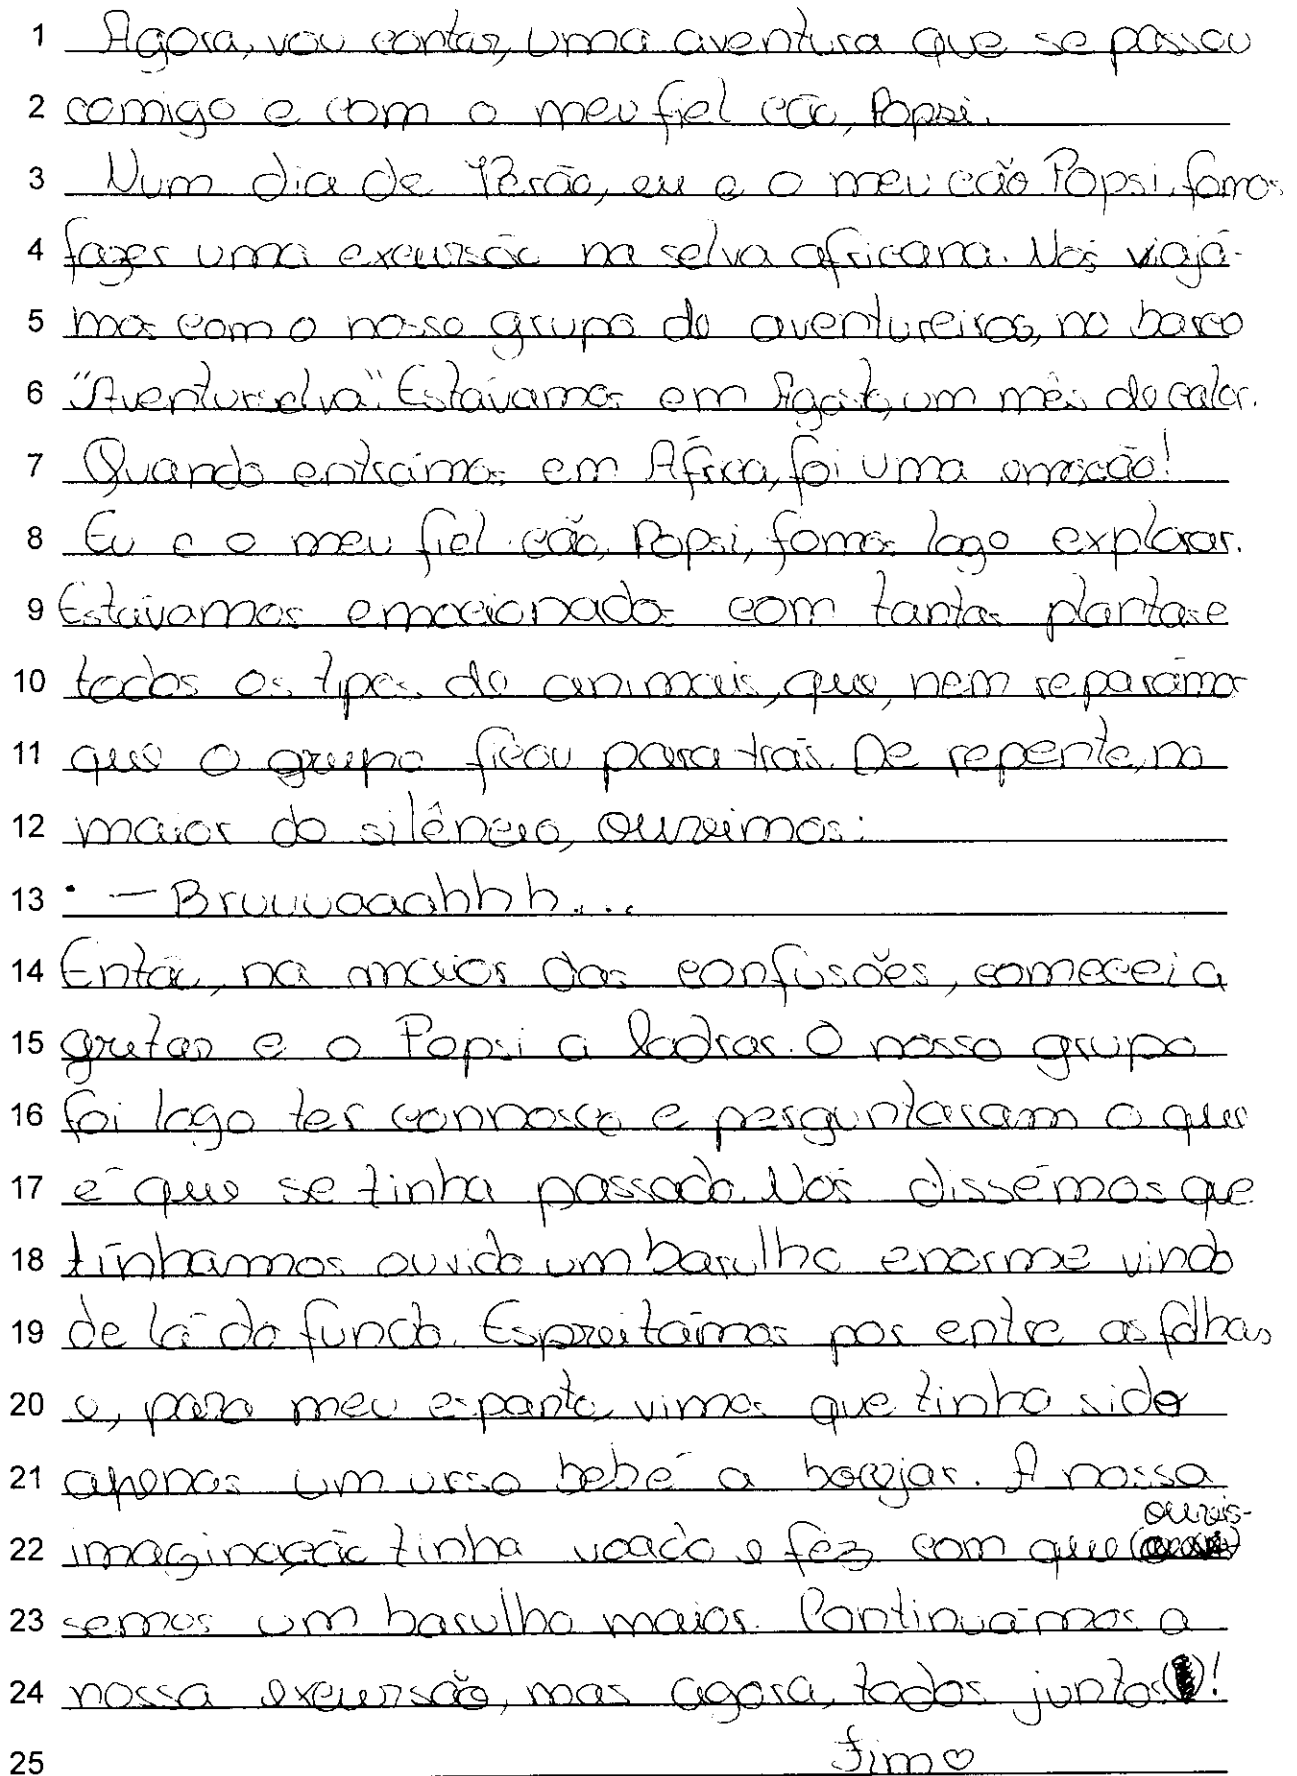 1 Agora, vou contar, uma aventura que se passou
2 comigo e com o meu fiel cão, Popsi.
3 Num dia de Verão, eu e o meu cão Popsi, fomos
4 fazer uma excursão na selva africana. Nós viajá-
5 mos com o nosso grupo de aventureiros, no barco
6 "Aventurselva". Estávamos em Agosto, um mês de calor.
7 Quando entrámos em África, foi uma emoção!
8 Eu e o meu fiel cão, Popsi, fomos logo explorar.
9 Estávamos emocionados com tantas plantas e
10 todos os tipos de animais, que, nem reparámos
11 que o grupo ficou para trás. De repente, no
12 maior do silêncio, ouvimos:
13 — Bruuuaaahhh...
14 Então, na maior das confusões, comecei a
15 gritar e o Popsi a ladrar. O nosso grupo
16 foi logo ter connosco e perguntaram o que
17 é que se tinha passado. Nós dissémos que
18 tínhamos ouvido um barulho enorme vindo
19 de lá do fundo. Espreitámos por entre as folhas
20 e, para meu espanto, vimos que tinha sido
21 apenas um urso bebé a bocejar. A nossa
22 imaginação tinha voado e fez com que ouvis-
23 semos um barulho maior. Continuámos a
24 nossa excursão, mas agora, todos juntos!
25 Fim ♡